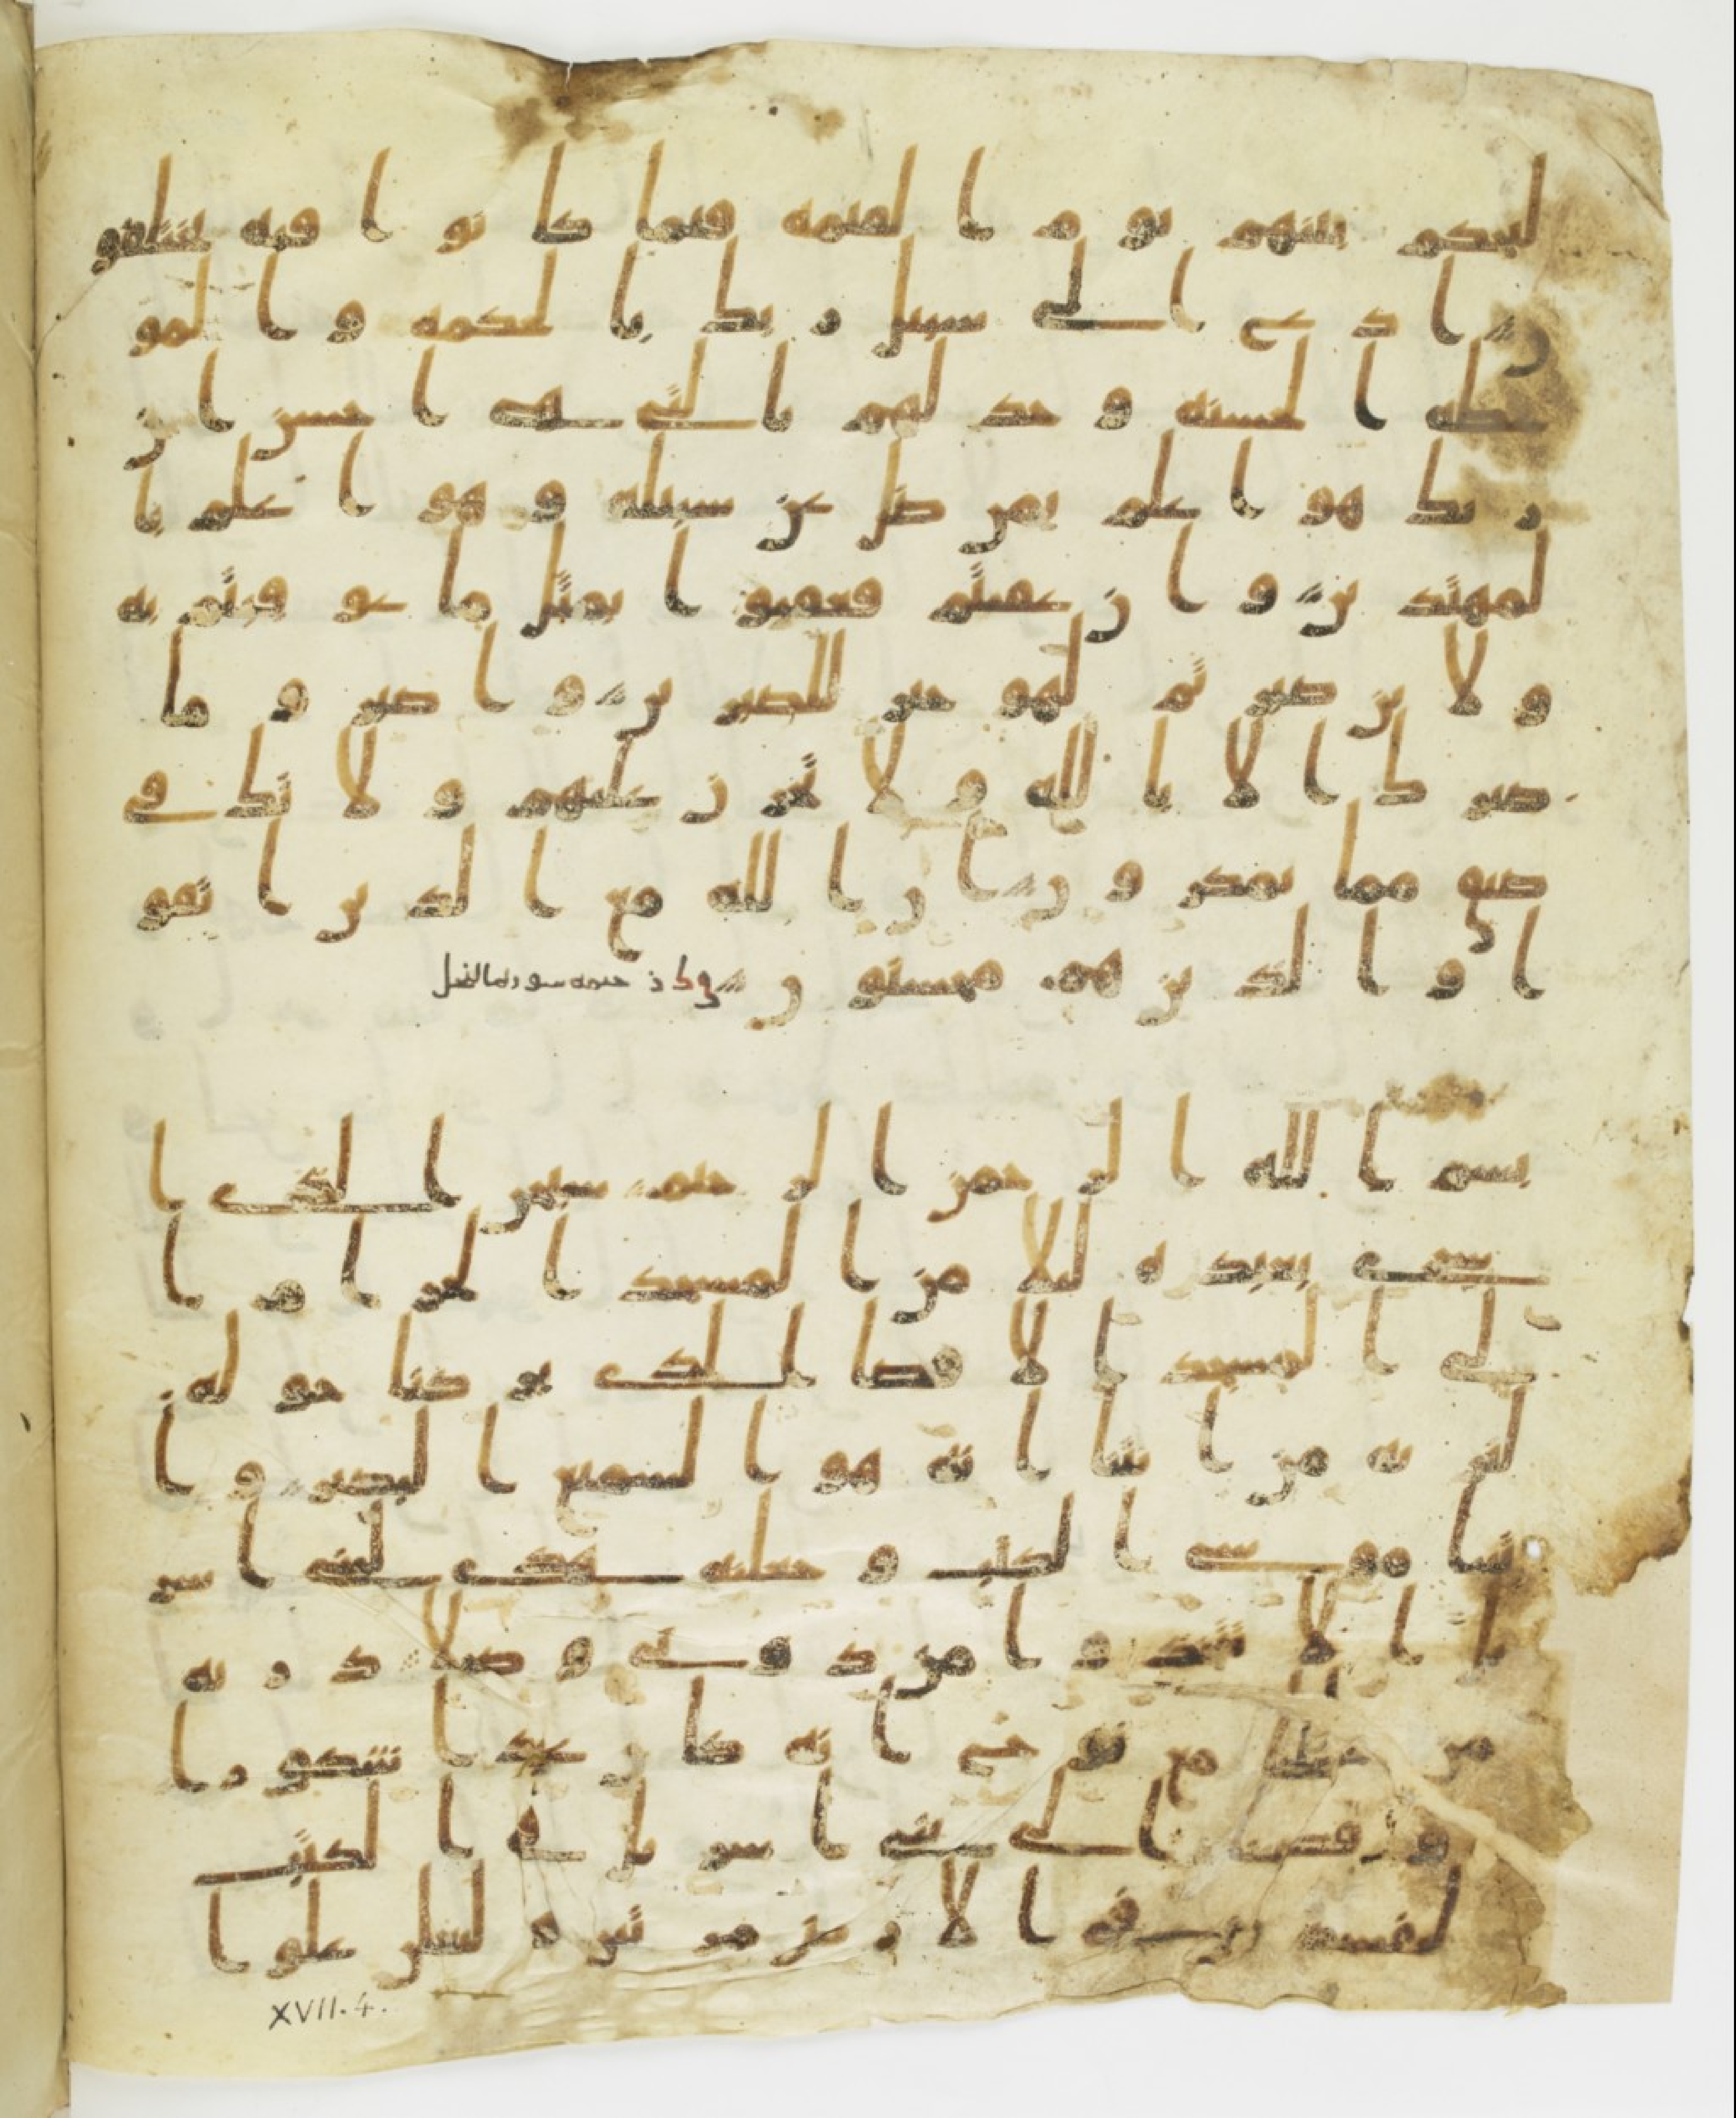 ليحكم بينهم يوم القيمه فيما كانوا فيه يختلفو
ن ادع الى سبيل ربك بالحكمه والمو
عظه الحسنه وجدلهم بالتى هى احسن ان
ربك هو اعلم بمن ضل عن سبيله وهو اعلم با
لمهتدين وان عقبتم فعقبوا بمثل ما عوقبتم به
ولئن صبرتم لهو خير للصبرين واصبر وما
صبرك الا بالله ولا تحزن عليهم ولا تك فى
ضيق مما يمكرون ان الله مع الذين اتقو
ا والذين هم محسنون ختمه سوره النحل
بسم الله الرحمن الرحيم سبحن الذى ا
سرى بعبده ليلا من المسجد الحرام ا
لى المسجد الاقصا الذى بركنا حوله
لنريه من ايتنا انه هو السميع البصير وا
تينا موسى الكتب وجعلنه هدى لبنى اسر
يل الا تتخذوا من دونى وكيلا ذريه
من حملنا مع نوح انه كان عبدا شكورا
وقضينا الى بنى اسريل فى الكتب
لتفسدن فى الارض مرتين ولتعلن علوا
XVII.4.